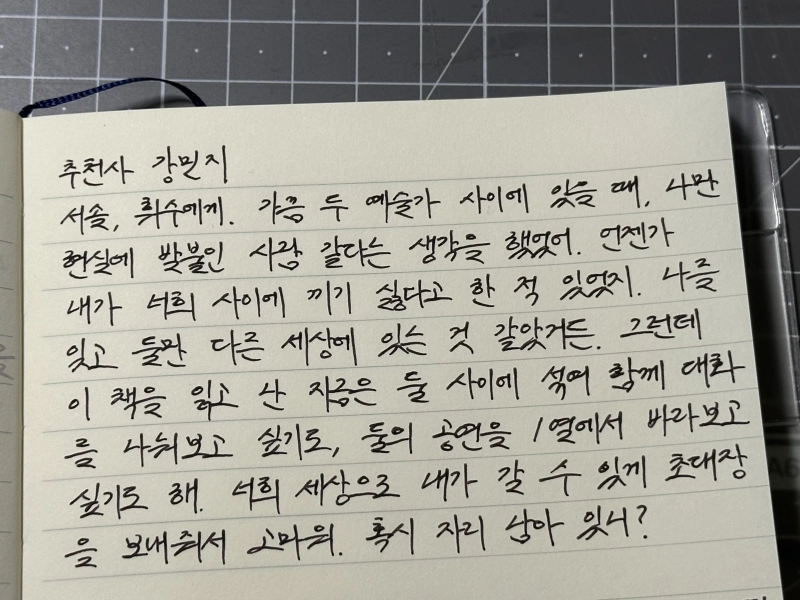 추천사 강민지
서솔, 휘수에게. 가끔 두 예술가 사이에 있을 때, 나만
현실에 발붙인 사람 같다는 생각을 했었어. 언젠가
내가 너희 사이에 끼기 싫다고 한 적 있었지. 나를
잊고 둘만 다른 세상에 있는 것 같았거든. 그런데
이 책을 읽고 난 지금은 둘 사이에 섞여 함께 대화
를 나눠보고 싶기도, 둘의 공연을 1열에서 바라보고
싶기도 해. 너희 세상으로 내가 갈 수 있게 초대장
을 보내줘서 고마워. 혹시 자리 남아 있니?